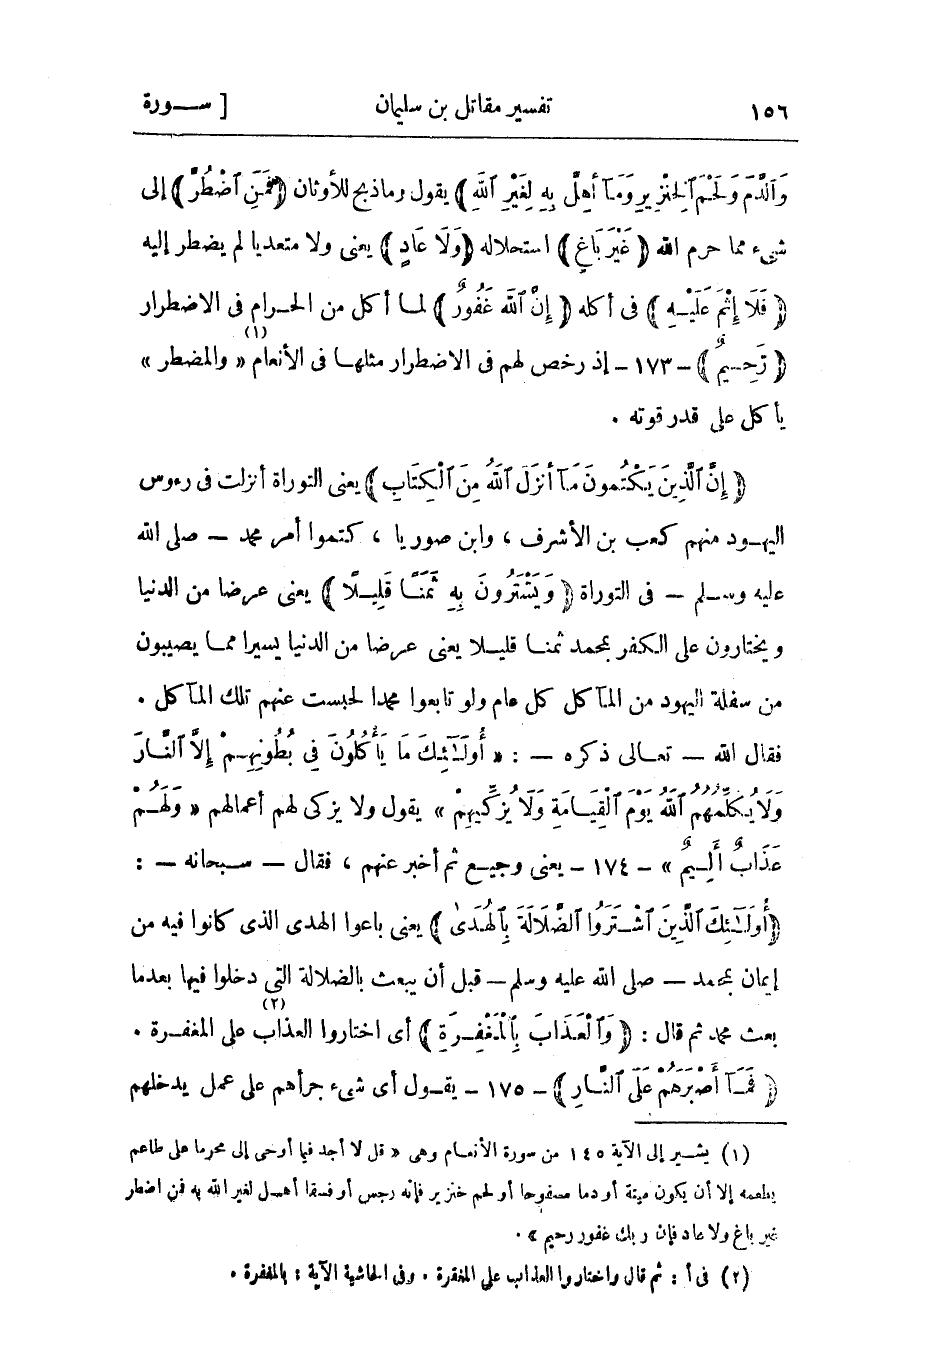 ١٥٦ تفسير مقاتل بن سليمان [ سـورة
وَٱلدَّمَ وَلَحْمَ ٱلْخِنْزِيرِ وَمَآ أُهِلَّ بِهِ لِغَيْرِ ٱللَّهِ ﴾ يقول وما ذبح للأوثان ﴿ فَمَنِ ٱضْطُرَّ ﴾ إلى
شىء مما حرم الله ﴿ غَيْرَ بَاغٍ ﴾ استحلاله ﴿ وَلَا عَادٍ ﴾ يعنى ولا متعديا لم يضطر إليه
﴿ فَلَا إِثْمَ عَلَيْـهِ ﴾ فى أكله ﴿ إِنَّ ٱللَّهَ غَفُورٌ ﴾ لمـا أكل من الحـرام فى الاضطرار
﴿ رَّحِـيمٌ ﴾ - ١٧٣ - إذ رخص لهم فى الاضطرار مثلهـا فى الأنعام (١) « والمضطر »
يأكل على قدر قوته .
﴿ إِنَّ ٱلَّذِينَ يَكْتُمُونَ مَآ أَنزَلَ ٱللَّهُ مِنَ ٱلْكِتَابِ ﴾ يعنى التوراة أنزلت فى رءوس
اليهـود منهم كعب بن الأشرف ، وابن صوريا ، كتموا أمر محمد — صلى الله
عليه وسـلم — فى التوراة ﴿ وَيَشْتَرُونَ بِهِ ثَمَنًـا قَلِيـلًا ﴾ يعنى عرضا من الدنيا
ويختارون على الكفر بمحمد ثمنـا قليـلا يعنى عرضا من الدنيا يسيرا ممـا يصيبون
من سفلة اليهود من المآكل كل عام ولو تابعوا محمدا لحبست عنهم تلك المآكل .
فقال الله — تعـالى ذكره — : « أُولَـٰٓئِكَ مَا يَأْكُلُونَ فِى بُطُونِهِـمْ إِلَّا ٱلنَّـارَ
وَلَا يُكَلِّمُهُمُ ٱللَّهُ يَوْمَ ٱلْقِيَـامَةِ وَلَا يُزَكِّيهِمْ » يقول ولا يزكى لهم أعمالهم « وَلَهُـمْ
عَذَابٌ أَلِـيمٌ » - ١٧٤ - يعنى وجيـع ثم أخبر عنهم ، فقال — سـبحانه — :
﴿ أُولَـٰٓئِكَ ٱلَّذِينَ ٱشْـتَرَوُا ٱلضَّلَالَةَ بِٱلْهُدَىٰ ﴾ يعنى باعوا الهدى الذى كانوا فيه من
إيمان بمحمد — صلى الله عليه وسلم — قبل أن يبعث بالضلالة التى دخلوا فيها بعدما
بعث محمد ثم قال : ﴿ وَٱلْعَذَابَ بِٱلْمَغْفِـرَةِ ﴾ (٢) أى اختاروا العذاب على المغفـرة .
﴿ فَمَـآ أَصْبَرَهُمْ عَلَى ٱلنَّـارِ ﴾ - ١٧٥ - يقـول أى شىء جرأهم على عمل يدخلهم
(١) يشـير إلى الآية ١٤٥ من سورة الأنعـام وهى « قل لا أجد فيما أوحى إلى محرما على طاعم
يطعمه إلا أن يكون ميتة أو دما مسفوحا أو لحم خنزير فإنه رجس أو فسقا أهـل لغير الله به فمن اضطر
غير باغ ولا عاد فإن ربك غفور رحيم » .
(٢) فى أ : ثم قال واختاروا العذاب على المغفرة . وفى الحاشية الآية : بالمغفرة .